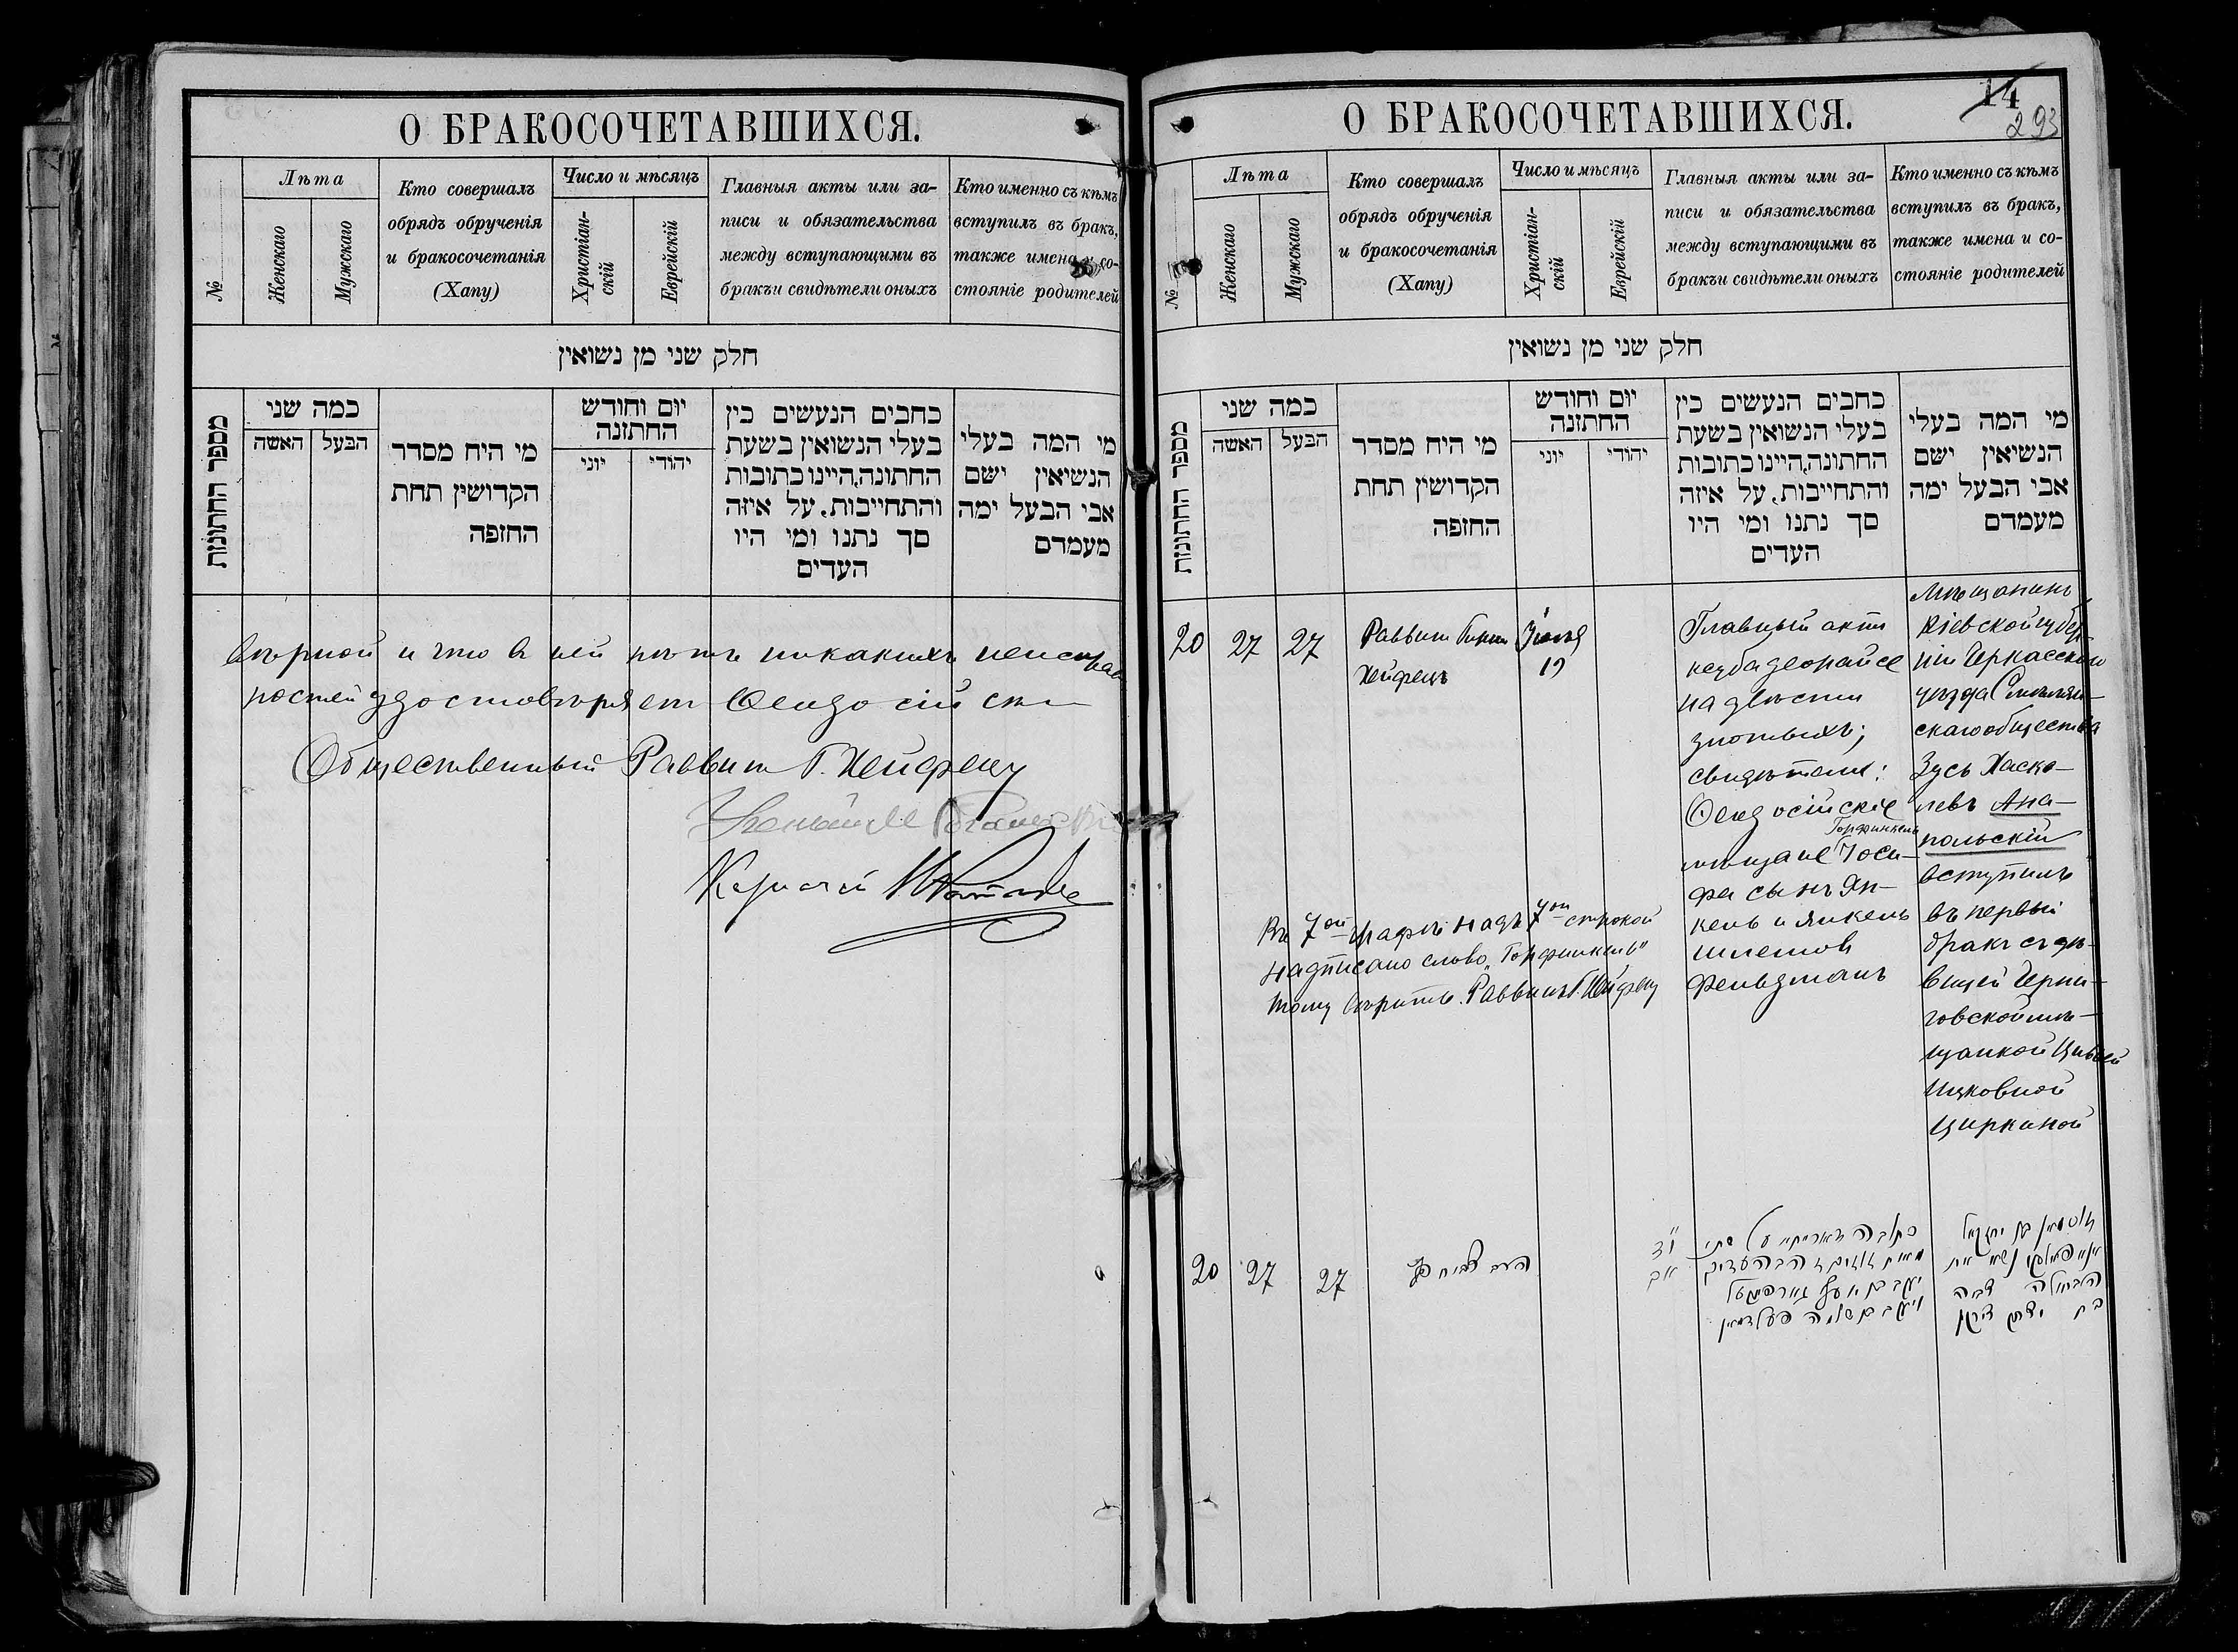 О БРАКОСОЧЕТАВШИХСЯ.
№
Лѣта
Женскаго
Мужскаго
Кто совершалъ
обрядъ обрученія
и бракосочетанія
(Хапу)
Число и мѣсяцъ
Христіан-
скій
Еврейскій
Главныя акты или за-
писи и обязательства
между вступающими въ
бракъ и свидѣтели оныхъ
Кто именно съ кѣмъ
вступилъ въ бракъ,
также имена и со-
стояніе родителей
חלק שני מן נשואין
מספר החתונות
כמה שני
האשה
הבעל
מי היח מסדר
הקדושין תחת
החזפה
יום וחודש
החתזנה
יוני
יהודי
כחבים הנעשים כין
בעלי הנשואין בשעת
החתונה,היינו כתובות
והתחייבות, על איזה
סך נתנו ומי היו
העדים
מי המה בעלי
הנשיאין ישם
אבי הבעל ימה
מעמדם
вѣрной и что в ней нѣтъ никакихъ неисправ
ностей удостовѣряет
Общественный Раввин Г. Хейфецъ
О БРАКОСОЧЕТАВШИХСЯ.
14
293
№
Лѣта
Женскаго
Мужскаго
Кто совершалъ
обрядъ обрученія
и бракосочетанія
(Хапу)
Число и мѣсяцъ
Христіан-
скій
Еврейскій
Главныя акты или за-
писи и обязательства
между вступающими въ
бракъ и свидѣтели оныхъ
Кто именно съ кѣмъ
вступилъ въ бракъ,
также имена и со-
стояніе родителей
חלק שני מן נשואין
מספר החתונות
כמה שני
האשה
הבעל
מי היח מסדר
הקדושין תחת
החזפה
יום וחודש
החתזנה
יוני
יהודי
כחבים הנעשים כין
בעלי הנשואין בשעת
החתונה,היינו כתובות
והתחייבות, על איזה
סך נתנו ומי היו
העדים
מי המה בעלי
הנשיאין ישם
אבי הבעל ימה
מעמדם
20
27
27
Раввин
Хейфецъ
Іюля
19
Главный акт
кезуба деорайсе
на двѣсти
злотыхъ;
свидѣтели:
Ѳеодосійскіе
Горфинкель
мѣщане Іоси-
фа сынъ Ян-
кель и Янкель
Шлемов
Фельдманъ
Мѣщанинъ
Кіевской губер-
ніи Черкасскаго
уѣзда Смѣлян-
скаго общества
Зусь Хаске-
левъ Ана-
польскій
вступилъ
въ первый
бракъ съ дѣ-
вицей Черни-
говской мѣ-
щанкой Цивьей
Ицковной
Циркиной
Въ 7ой графѣ надъ 7ой строкой
надписано слово „Горфинкель"
тому вѣрить. Раввинъ Г. Хейфецъ
20
27
27
י"ד
אב
כתובה דאורייתא על שתי
יעקב בן יוסף גורפינקל
ויעקב בן שלמה פעלדמאן
זוסמאן בן יחזקאל
אנאפאלסקי נשא את
הבתולה צביה
בת יצחק צירקין